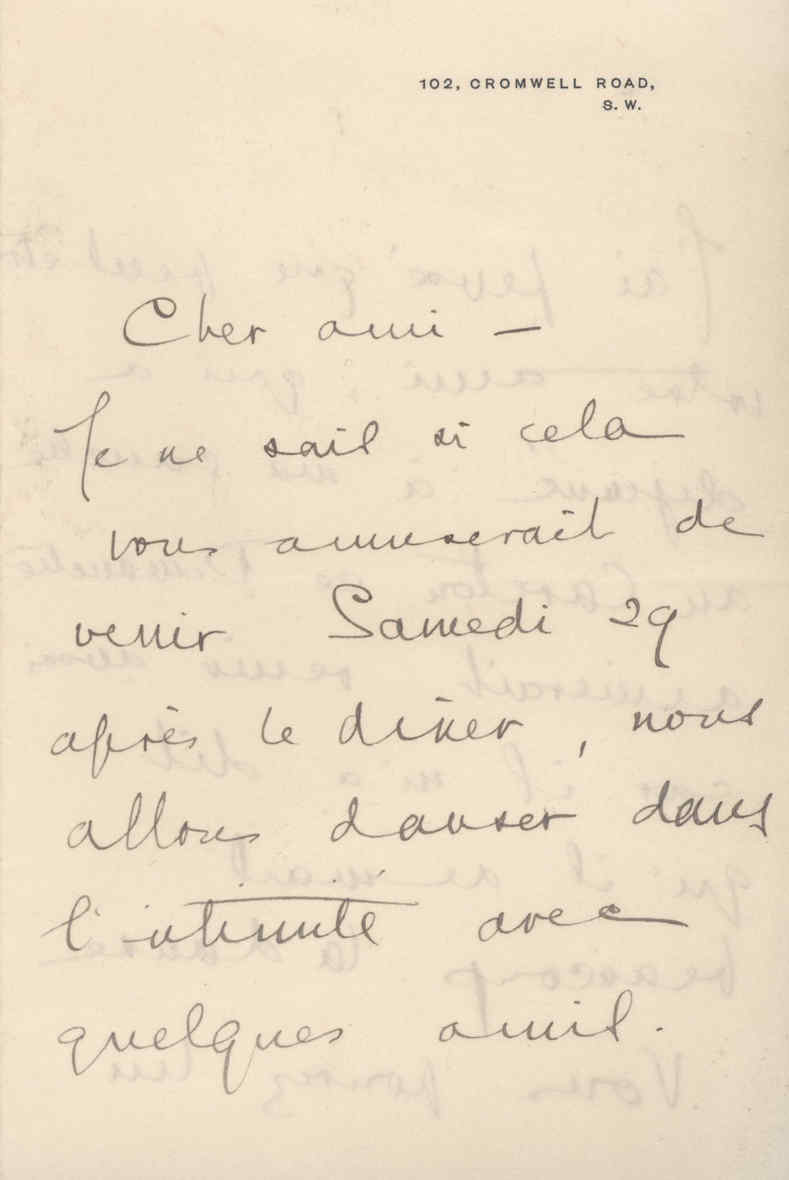 102, CROMWELL ROAD,
S. W.
Cher ami —
Je ne sais si cela
vous amuserait de
venir Samedi 29
après le dîner, nous
allons danser dans
l'intimité avec
quelques amis.